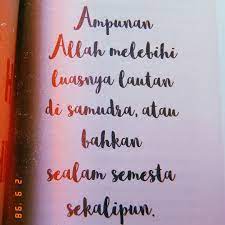 Ampunan
Allah melebihi
luasnya lautan
di samudra, atau
bahkan
sealam semesta
sekalipun.
'98 6 2